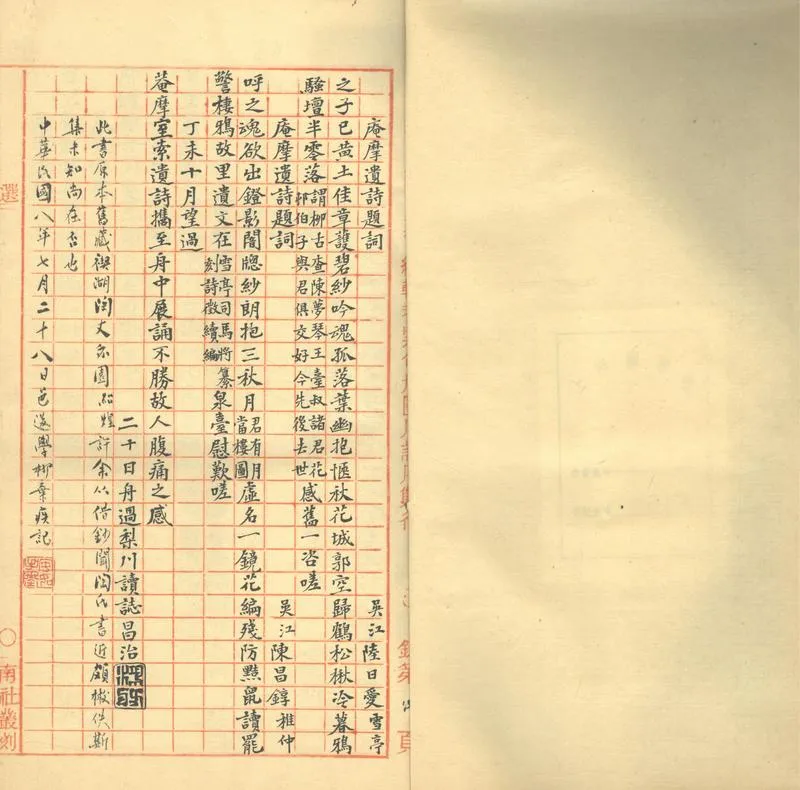 庵摩遺詩題詞 吳江陸日愛雪亭
之子已黃土佳章護碧紗吟魂孤落葉幽抱愜秋花城郭空歸鶴松楸冷暮鴉
騷壇半零落
謂柳古查陳夢琴王臺叔諸君花
邨伯子與君俱交好今先後去世
感舊一咨嗟
庵摩遺詩題詞 吳江陳昌錞雅仲
呼之魂欲出鐙影闇牕紗朗抱三秋月
君有月
當樓圖
虛名一鏡花編殘防黠鼠讀罷
警棲鴉故里遺文在
雪亭司馬將纂
刻詩徵續編
泉臺慰歎嗟
丁未十月望過
菴摩室索遺詩攜至舟中展誦不勝故人腹痛之感
二十日舟過梨川讀誌昌治
此書原本舊藏禊湖陶丈亦園紹煌許余從借鈔聞陶氏書近頗散佚斯
集未知尚在否也
中華民國八年七月二十八日邑後學柳棄疾記
南社叢刻